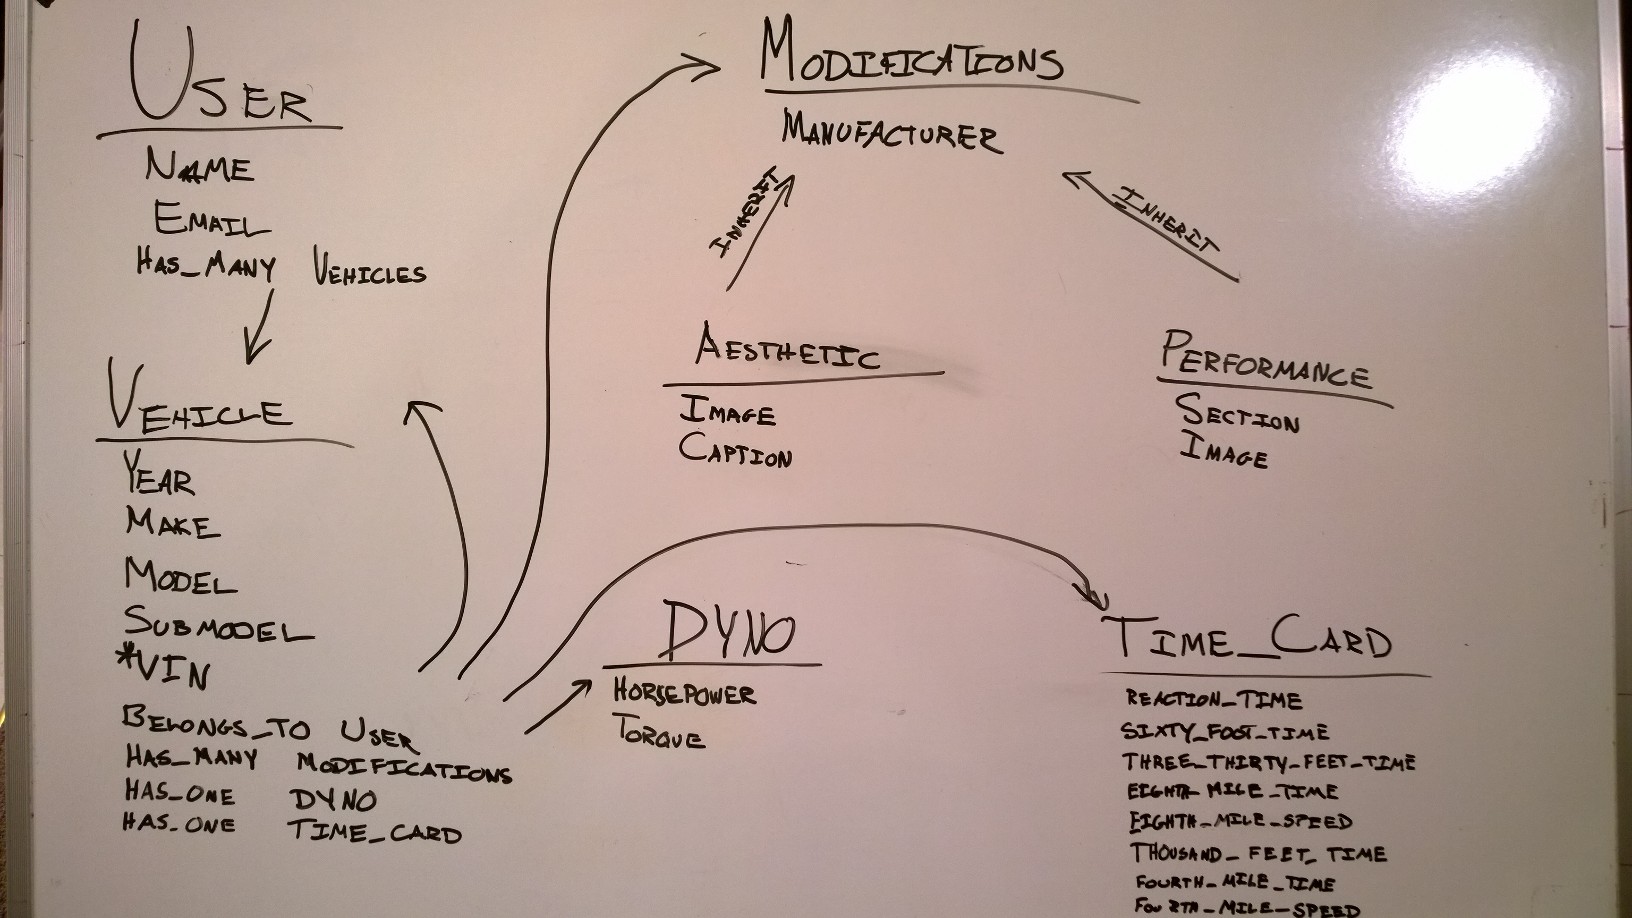 USER
NAME
EMAIL
HAS_MANY VEHICLES
VEHICLE
YEAR
MAKE
MODEL
SUBMODEL
*VIN
BELONGS_TO USER
HAS_MANY MODIFICATIONS
HAS_ONE DYNO
HAS_ONE TIME_CARD
MODIFICATIONS
MANUFACTURER
INHERIT
INHERIT
AESTHETIC
IMAGE
CAPTION
PERFORMANCE
SECTION
IMAGE
DYNO
HORSEPOWER
TORQUE
TIME_CARD
REACTION_TIME
SIXTY_FOOT_TIME
THREE_THIRTY_FEET_TIME
EIGHTH_MILE_TIME
EIGHTH_MILE_SPEED
THOUSAND_FEET_TIME
FOURTH_MILE_TIME
FOURTH_MILE_SPEED